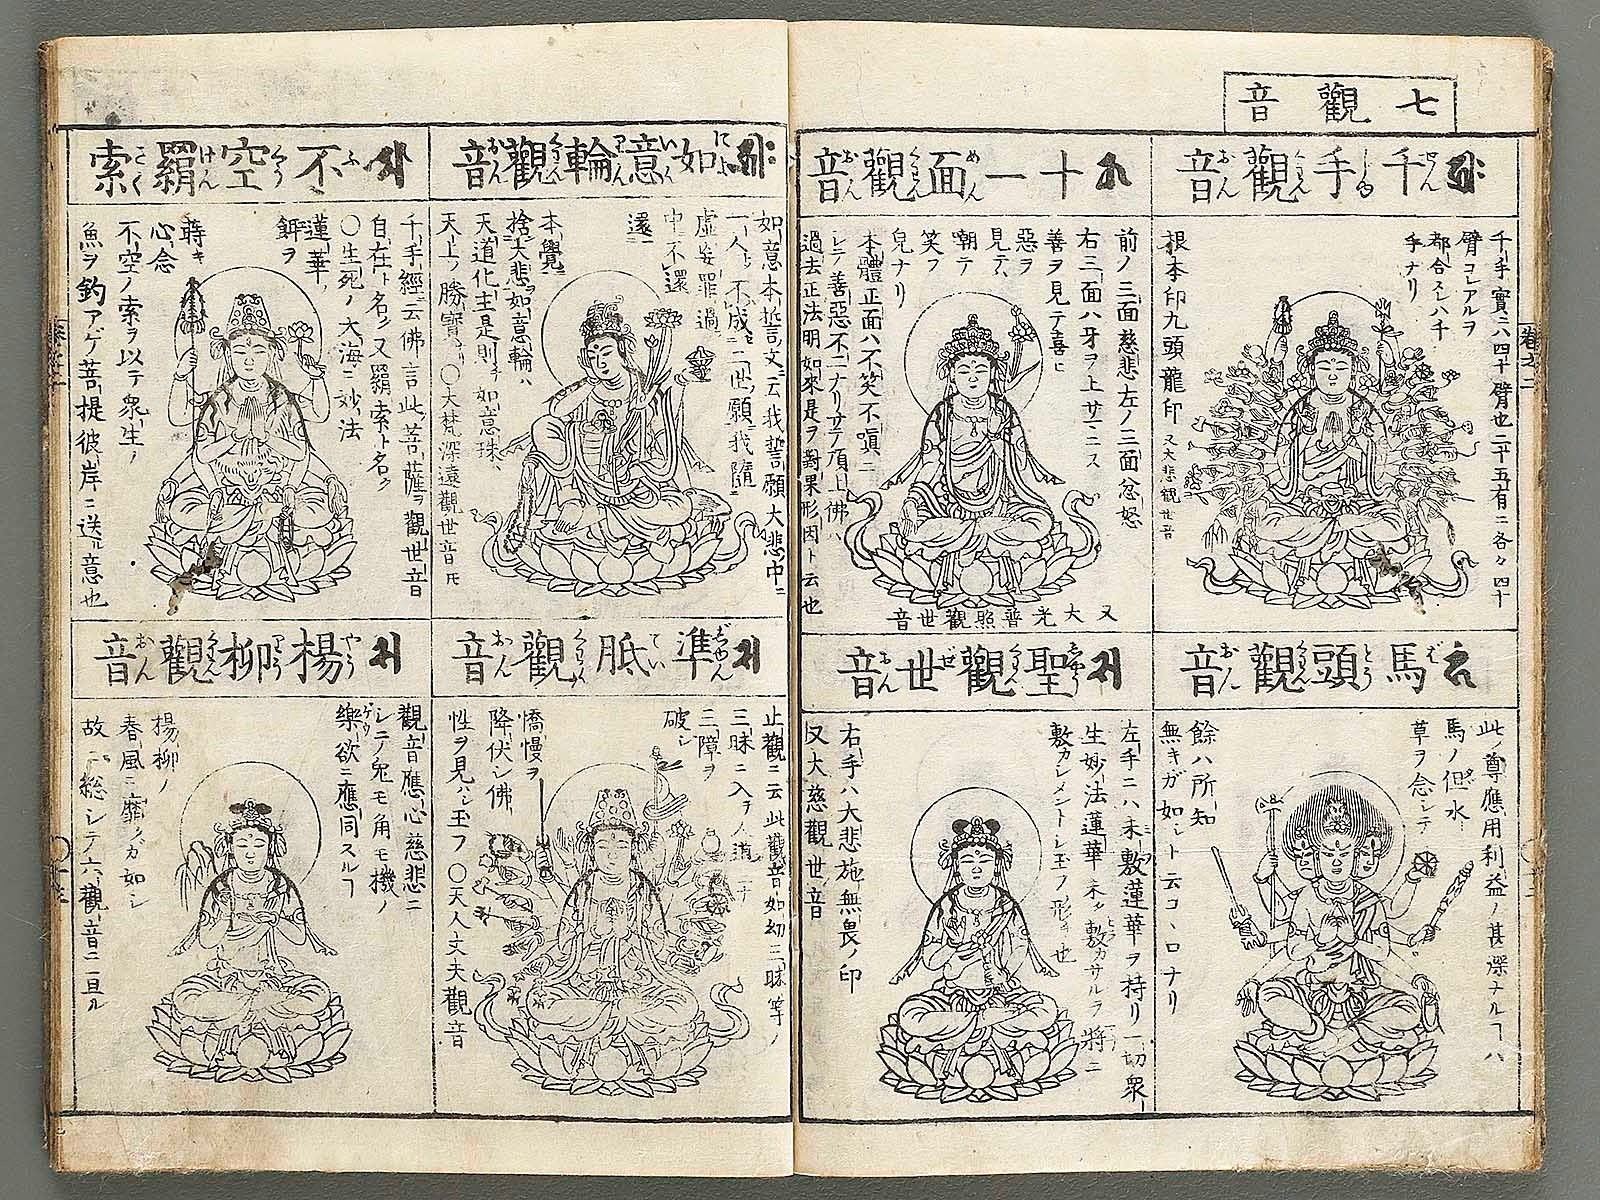 七觀音
千手觀音
せんじゆくわんおん
千手實ニハ四十臂也二十五有ニ各々四十
臂コレアルヲ
都合スレハ千
手ナリ
根本印九頭龍印
又大悲觀世音
十一面觀音
めんくわんおん
前ノ三面慈悲左ノ三面忿怒
右三面ハ牙ヲ上サマニス
善ヲ見テ喜ヒ
惡ヲ
見テ
嘲テ
笑フ
皃ナリ
本體正面ハ不笑不嗔ニ
シテ善惡不二ナリサテ頂上佛ハ
過去正法明如來是ヲ對果形因ト云也
又大光普照觀世音
馬頭觀音
ばとうくわんおん
此ノ尊應用利益ノ甚深ナルヿハ
馬ノ但水
草ヲ念シテ
餘ハ所知
無キガ如シト云コヽロナリ
聖觀世音
しやうくわんぜおん
左手ニハ未敷蓮華ヲ持リ一切衆
生妙法蓮華未タ敷カサルヲ將ニ
敷カシメントシ玉フ形チ也
右手ハ大悲施無畏ノ印
又大慈觀世音
如意輪觀音
によいりんくわんおん
如意本誓文云我誓願大悲中ニ
一人モ不成二世願我隨
虚妄罪過
中不還
本覺
捨大悲如意輪ハ
天道化主是則チ如意珠
天上ノ勝寶 〇大梵深遠觀世音氏
不空羂索
ふくうけんさく
千手經云佛言此菩薩ヲ觀世音
自在ト名ク又羂索ト名ク
〇生死ノ大海ニ妙法
蓮華ノ
餌ヲ
蒔キ
心念
不空ノ索ヲ以テ衆生ノ
魚ヲ釣アゲ菩提彼岸ニ送ル意也
準胝觀音
じゆんていくわんおん
止觀ニ云此觀音如幻三昧等ノ
三昧ニ入ヲ人道
三障ヲ
破シ
憍慢ヲ
降伏シ佛
性ヲ見ハシ玉フ 〇天人丈夫觀音
楊柳觀音
やうりうくわんおん
觀音應心慈悲ニ
シテノ皃モ角モ機ノ
樂欲ニ應同スルヿ
楊柳ノ
春風ニ靡クガ如シ
故ニ總シテ六觀音ニ亘ル